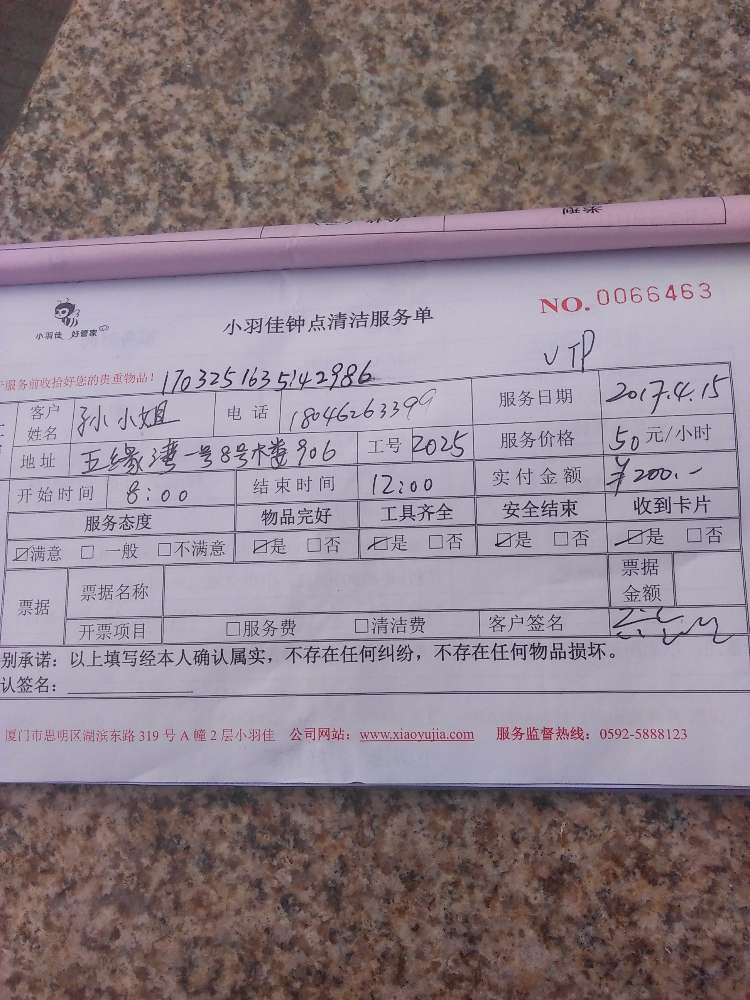 小羽佳 好管家
小羽佳钟点清洁服务单
NO. 0066463
服务前收拾好您的贵重物品！
1703251635142986
VIP
客户姓名 孙小姐 电话 18046263399 服务日期 2017.4.15
地址 五缘湾一号8号楼906 工号 2025 服务价格 50元/小时
开始时间 8:00 结束时间 12:00 实付金额 ¥200.-
服务态度 物品完好 工具齐全 安全结束 收到卡片
☑满意 □一般 □不满意 ☑是 □否 ☑是 □否 ☑是 □否 ☑是 □否
票据 票据名称 票据金额
开票项目 □服务费 □清洁费 客户签名
别承诺：以上填写经本人确认属实，不存在任何纠纷，不存在任何物品损坏。
认签名：
厦门市思明区湖滨东路319号A幢2层小羽佳 公司网站：www.xiaoyujia.com 服务监督热线：0592-5888123